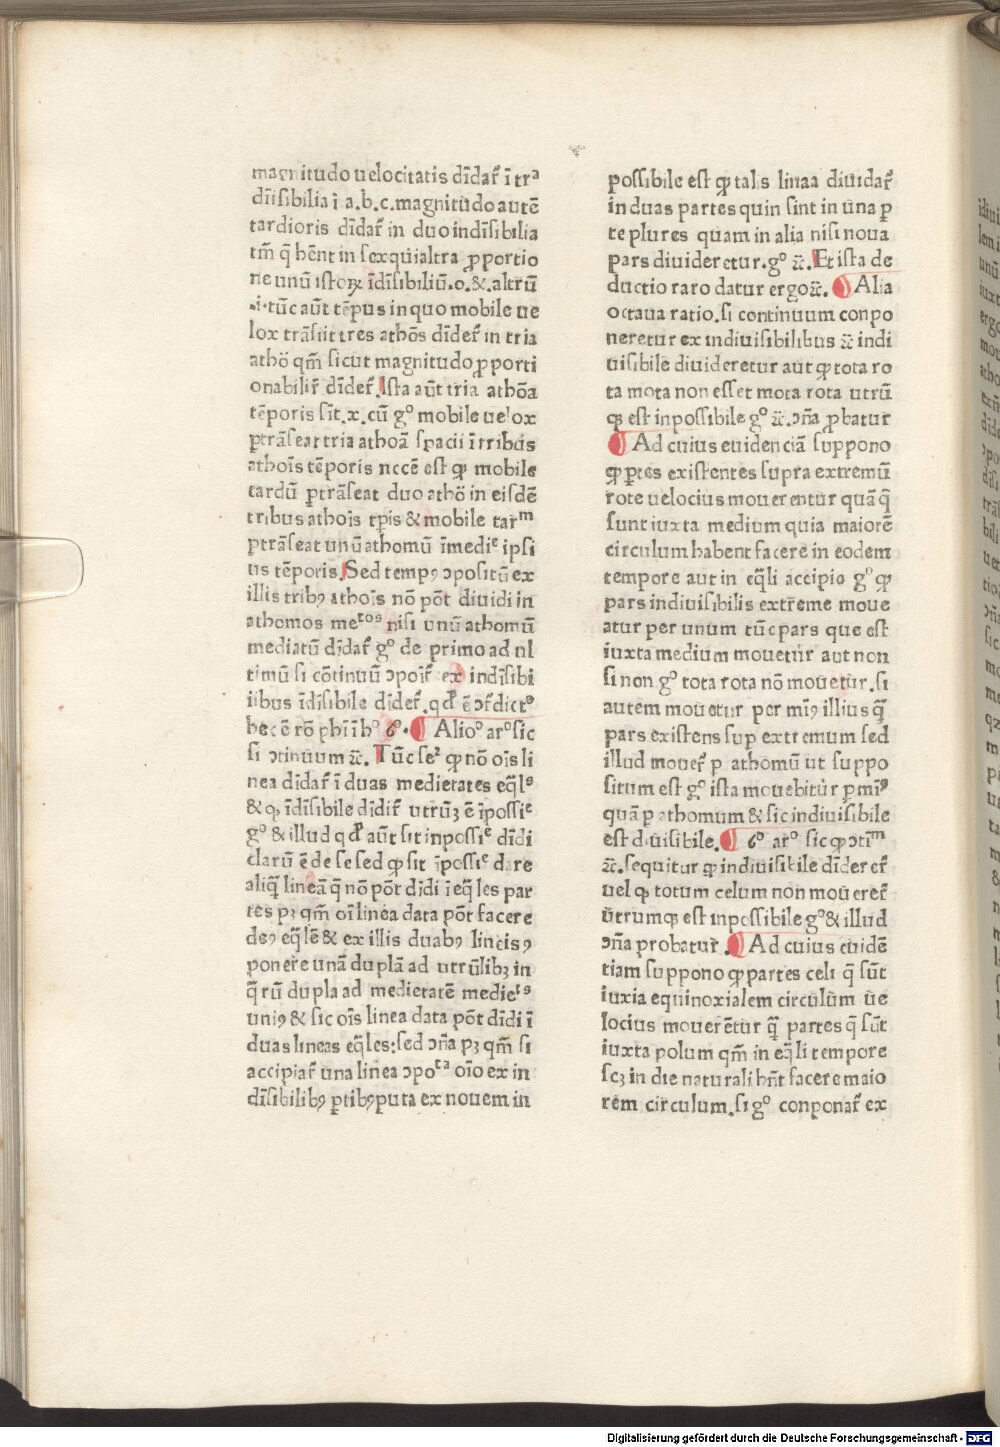 magnitudo uelocitatis dīdar̄ ī trᵃ
dīisibilia ī a.b.c.magnitudo autē
tardioris dīdar̄ in duo indīsibilia
tm̄ q̄ hēnt in sexquialtra ꝓportio
ne unū istoꝝ īdīsibiliū.o.&.altrū
.i.tūc aūt tēpus in quo mobile ue
lox trāsiit tres athōs dīder̄ in tria
athō qm̄ sicut magnitudo ꝓporti
onabilir̄ dīder̄.Ista aūt tria athōa
tēporis sīt.x.cū gᵒ mobile uelox
ꝑtrāseat tria athoā spacii ī tribus
athoīs tēporis nccē est ꝙ mobile
tardū ꝑtrāseat duo athō in eisdē
tribus athoīs tꝑis & mobile tarᵐ
ꝑtrāseat unū athomū īmedīᵉ ipsi
us tēporis.Sed tempꝰ ↄpositū ex
illis tribꝰ athoīs nō pōt diuidi in
athomos meᵗᵒˢ nisi unū athomū
mediatū dīdar̄ gᵒ de primo ad ul
timū si cōtinuū ↄpoīr̄ ex indīsibi
libus īdīsibile dīder̄.qď ē ↄr̄dictᵒ
hec ē rō phī ī hᵒ 6ᵒ. Alioᵒ arᵒ sic
si ↄtinuum ⁊c̄. Tūc seʳ ꝙ nō oīs li
nea dīdar̄ ī duas medietates eq̄lˢ
& ꝙ īdīsibile dīdir̄ utrūꝫ ē īpossiᵉ
gᵒ & illud qď aūt sit inpossiᵉ dīdi
clarū ē de se sed ꝙ sit īpossiᵉ dare
aliq̄ lineā q̄ nō pōt dīdi ī eq̄les par
tes pꝫ qm̄ oī linea data pōt facere
deꝰ eq̄lē & ex illis duabꝰ lineisꝰ
ponere unā duplā ad utrūlibꝫ in
q̄rū dupla ad medietatē medieᵗˢ
uniꝰ & sic oīs linea data pōt dīdi ī
duas lineas eq̄les:sed ↄn̄a pꝫ qm̄ si
accipiar̄ una linea ↄpoᵗᵃ oīo ex in
dīsibilibꝰ ꝑtibꝰ puta ex nouem in
possibile est ꝙ talis linaa diuidar̄
in duas partes quin sint in una ꝑ
te plures quam in alia nisi noua
pars diuideretur.gᵒ ⁊c̄.Et ista de
ductio raro datur ergo ⁊c̄. Alia
octaua ratio.si continuum conpo
neretur ex indiuisibilibus ⁊c̄ indi
uisibile diuideretur aut ꝙ tota ro
ta mota non esset mota rota utrū
qꝫ est inpossibile gᵒ ⁊c̄.ↄn̄a ꝓbatur
Ad cuius euidenciā suppono
ꝙ ꝑtes existentes supra extremū
rote uelocius mouerentur quā q̄
sunt iuxta medium quia maiorē
circulum habent facere in eodem
tempore aut in eq̄li accipio gᵒ ꝙ
pars indiuisibilis extr̄eme moue
atur per unum tūc pars que est
iuxta medium mouetur aut non
si non gᵒ tota rota nō mouetur.si
autem mouetur per miꝰ illius q̄
pars existens suꝑ extremum sed
illud mouer̄ ꝑ athomū ut suppo
situm est gᵒ ista mouebitur ꝑ mīꝰ
quā ꝑ athomum & sic indiuisibile
est diuisibile. 6ᵒ arᵒ sic ꝙ ↄtīᵐ
⁊c̄.sequitur ꝙ indiuisibile dīderer̄
uel ꝙ totum celum non mouerer̄
utrumqꝫ est inpossibile gᵒ & illud
ↄn̄a probatur. Ad cuius euidē
tiam suppono ꝙ partes celi q̄ sūt
iuxia equinoxialem circulum ue
locius mouerētur q̄ partes q̄ sūt
iuxta polum qm̄ in eq̄li tempore
scꝫ in die naturali hn̄t facere maio
rem circulum.si gᵒ conponar̄ ex
Digitalisierung gefördert durch die Deutsche Forschungsgemeinschaft - DFG